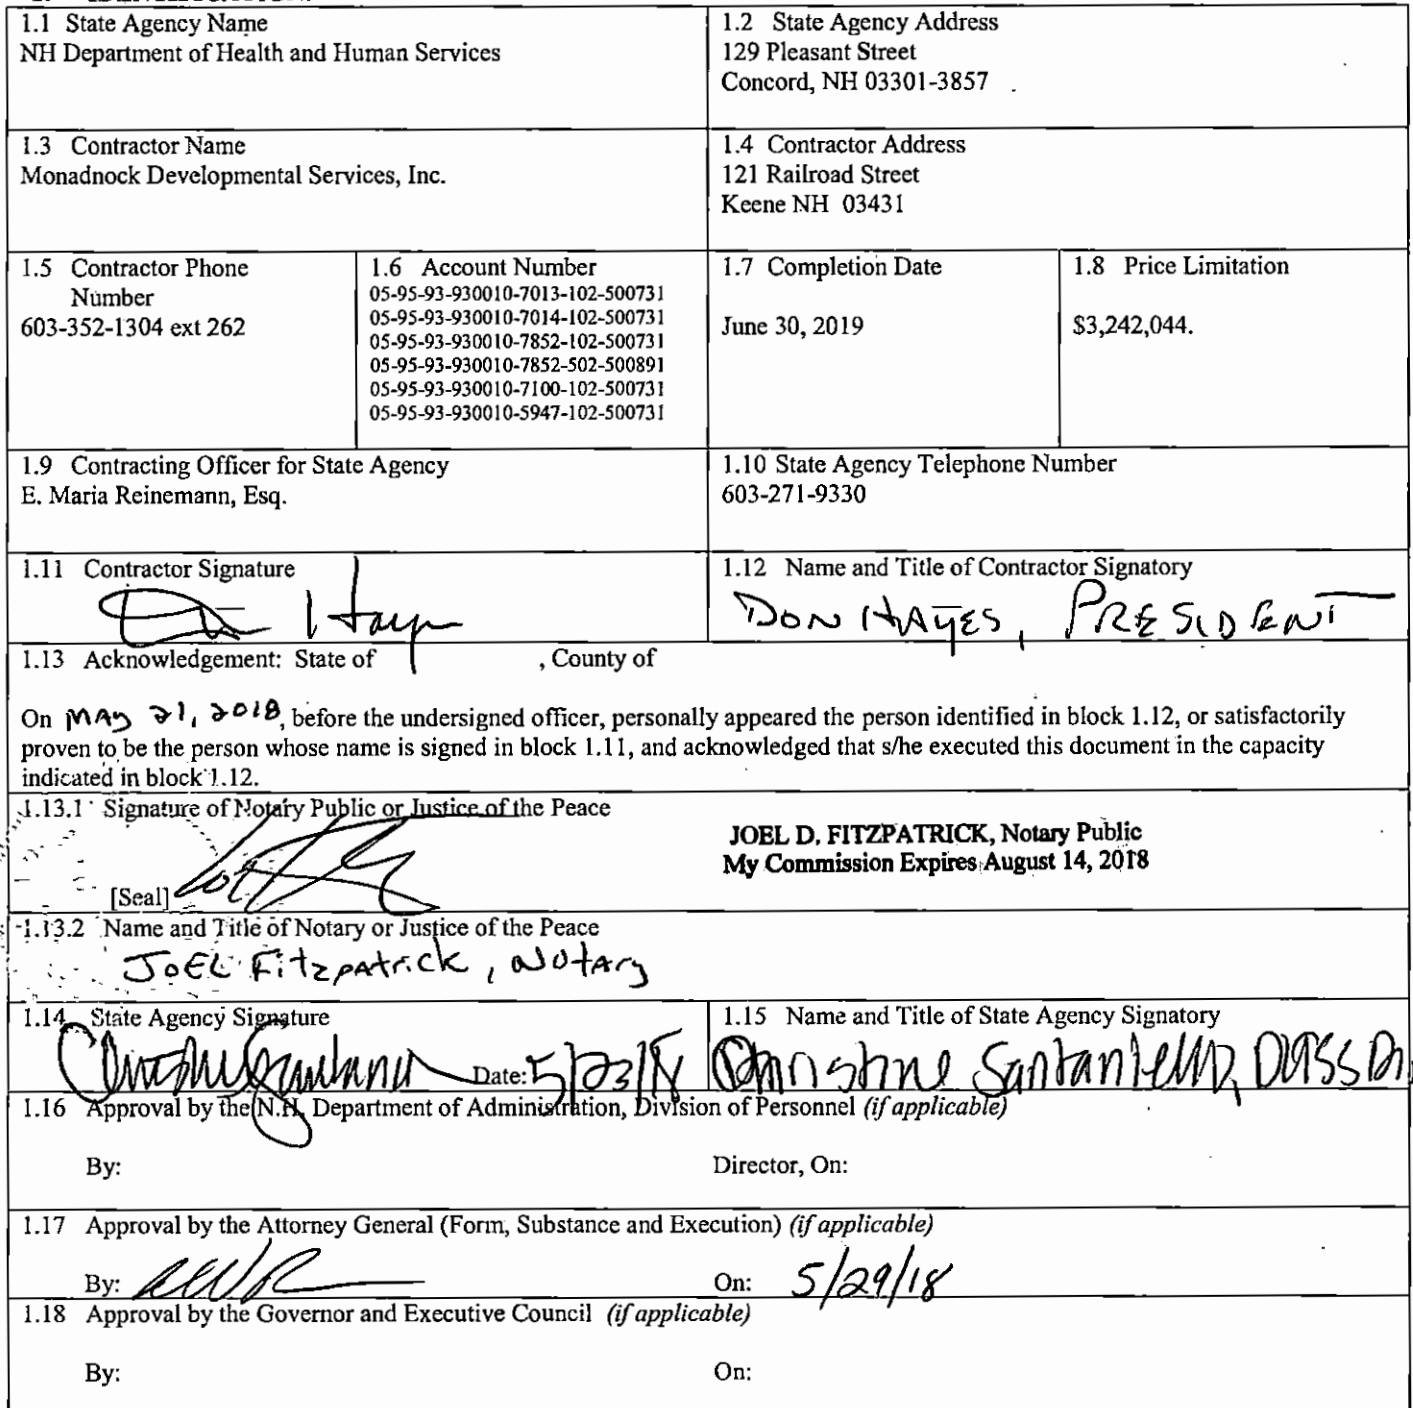 1.1 State Agency Name
NH Department of Health and Human Services
1.2 State Agency Address
129 Pleasant Street
Concord, NH 03301-3857
1.3 Contractor Name
Monadnock Developmental Services, Inc.
1.4 Contractor Address
121 Railroad Street
Keene NH 03431
1.5 Contractor Phone
Number
603-352-1304 ext 262
1.6 Account Number
05-95-93-930010-7013-102-500731
05-95-93-930010-7014-102-500731
05-95-93-930010-7852-102-500731
05-95-93-930010-7852-502-500891
05-95-93-930010-7100-102-500731
05-95-93-930010-5947-102-500731
1.7 Completion Date
June 30, 2019
1.8 Price Limitation
$3,242,044.
1.9 Contracting Officer for State Agency
E. Maria Reinemann, Esq.
1.10 State Agency Telephone Number
603-271-9330
1.11 Contractor Signature
1.12 Name and Title of Contractor Signatory
DON HAYES, PRESIDENT
1.13 Acknowledgement: State of , County of
On MAY 21, 2018, before the undersigned officer, personally appeared the person identified in block 1.12, or satisfactorily
proven to be the person whose name is signed in block 1.11, and acknowledged that s/he executed this document in the capacity
indicated in block 1.12.
1.13.1 Signature of Notary Public or Justice of the Peace
JOEL D. FITZPATRICK, Notary Public
My Commission Expires August 14, 2018
[Seal]
1.13.2 Name and Title of Notary or Justice of the Peace
JOEL Fitzpatrick, Notary
1.14 State Agency Signature
Date: 5/23/18
1.15 Name and Title of State Agency Signatory
Christine Santaniello,
1.16 Approval by the N.H. Department of Administration, Division of Personnel (if applicable)
By: Director, On:
1.17 Approval by the Attorney General (Form, Substance and Execution) (if applicable)
By: On: 5/29/18
1.18 Approval by the Governor and Executive Council (if applicable)
By: On: